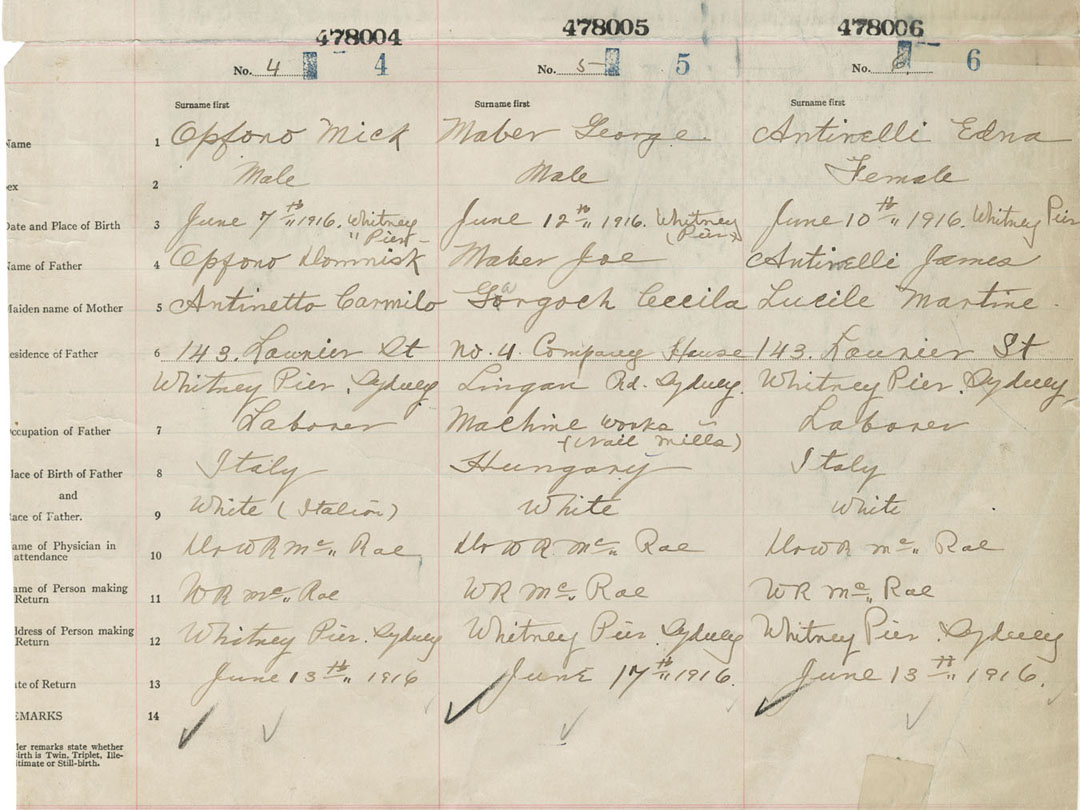 478004 478005 478006
No. 4 4 No. 5 5 No. 6 6
Surname first Surname first Surname first
Name 1 Opfono Mick Maber George Antinelli Edna
ex 2 Male Male Female
Date and Place of Birth 3 June 7th 1916. Whitney Pier June 12th 1916. Whitney (Pier) June 10th 1916. Whitney Pier
Name of Father 4 Opfono Domnisk Maber Joe Antinelli James
Maiden name of Mother 5 Antinetto Carmilo Gargoch Cecila Lucile Martine.
esidence of Father 6 143. Launier St No. 4 Company House 143. Launier St
Whitney Pier. Sydney Lingan Rd. Sydney. Whitney Pier. Sydney,
ccupation of Father 7 Laborer Machine works Laborer
(Nail Mills)
lace of Birth of Father 8 Italy Hungary Italy
and
ace of Father. 9 White (Italion) White White
ame of Physician in attendance 10 Dr W R Mc Rae Dr W R Mc Rae Dr W R Mc Rae
ame of Person making Return 11 W R Mc Rae W R Mc Rae W R Mc Rae
ddress of Person making Return 12 Whitney Pier. Sydney Whitney Pier. Sydney Whitney Pier. Sydney
ate of Return 13 June 13th 1916 June 17th 1916. June 13th 1916.
EMARKS 14
der remarks state whether
irth is Twin, Triplet, Ille-
itimate or Still-birth.